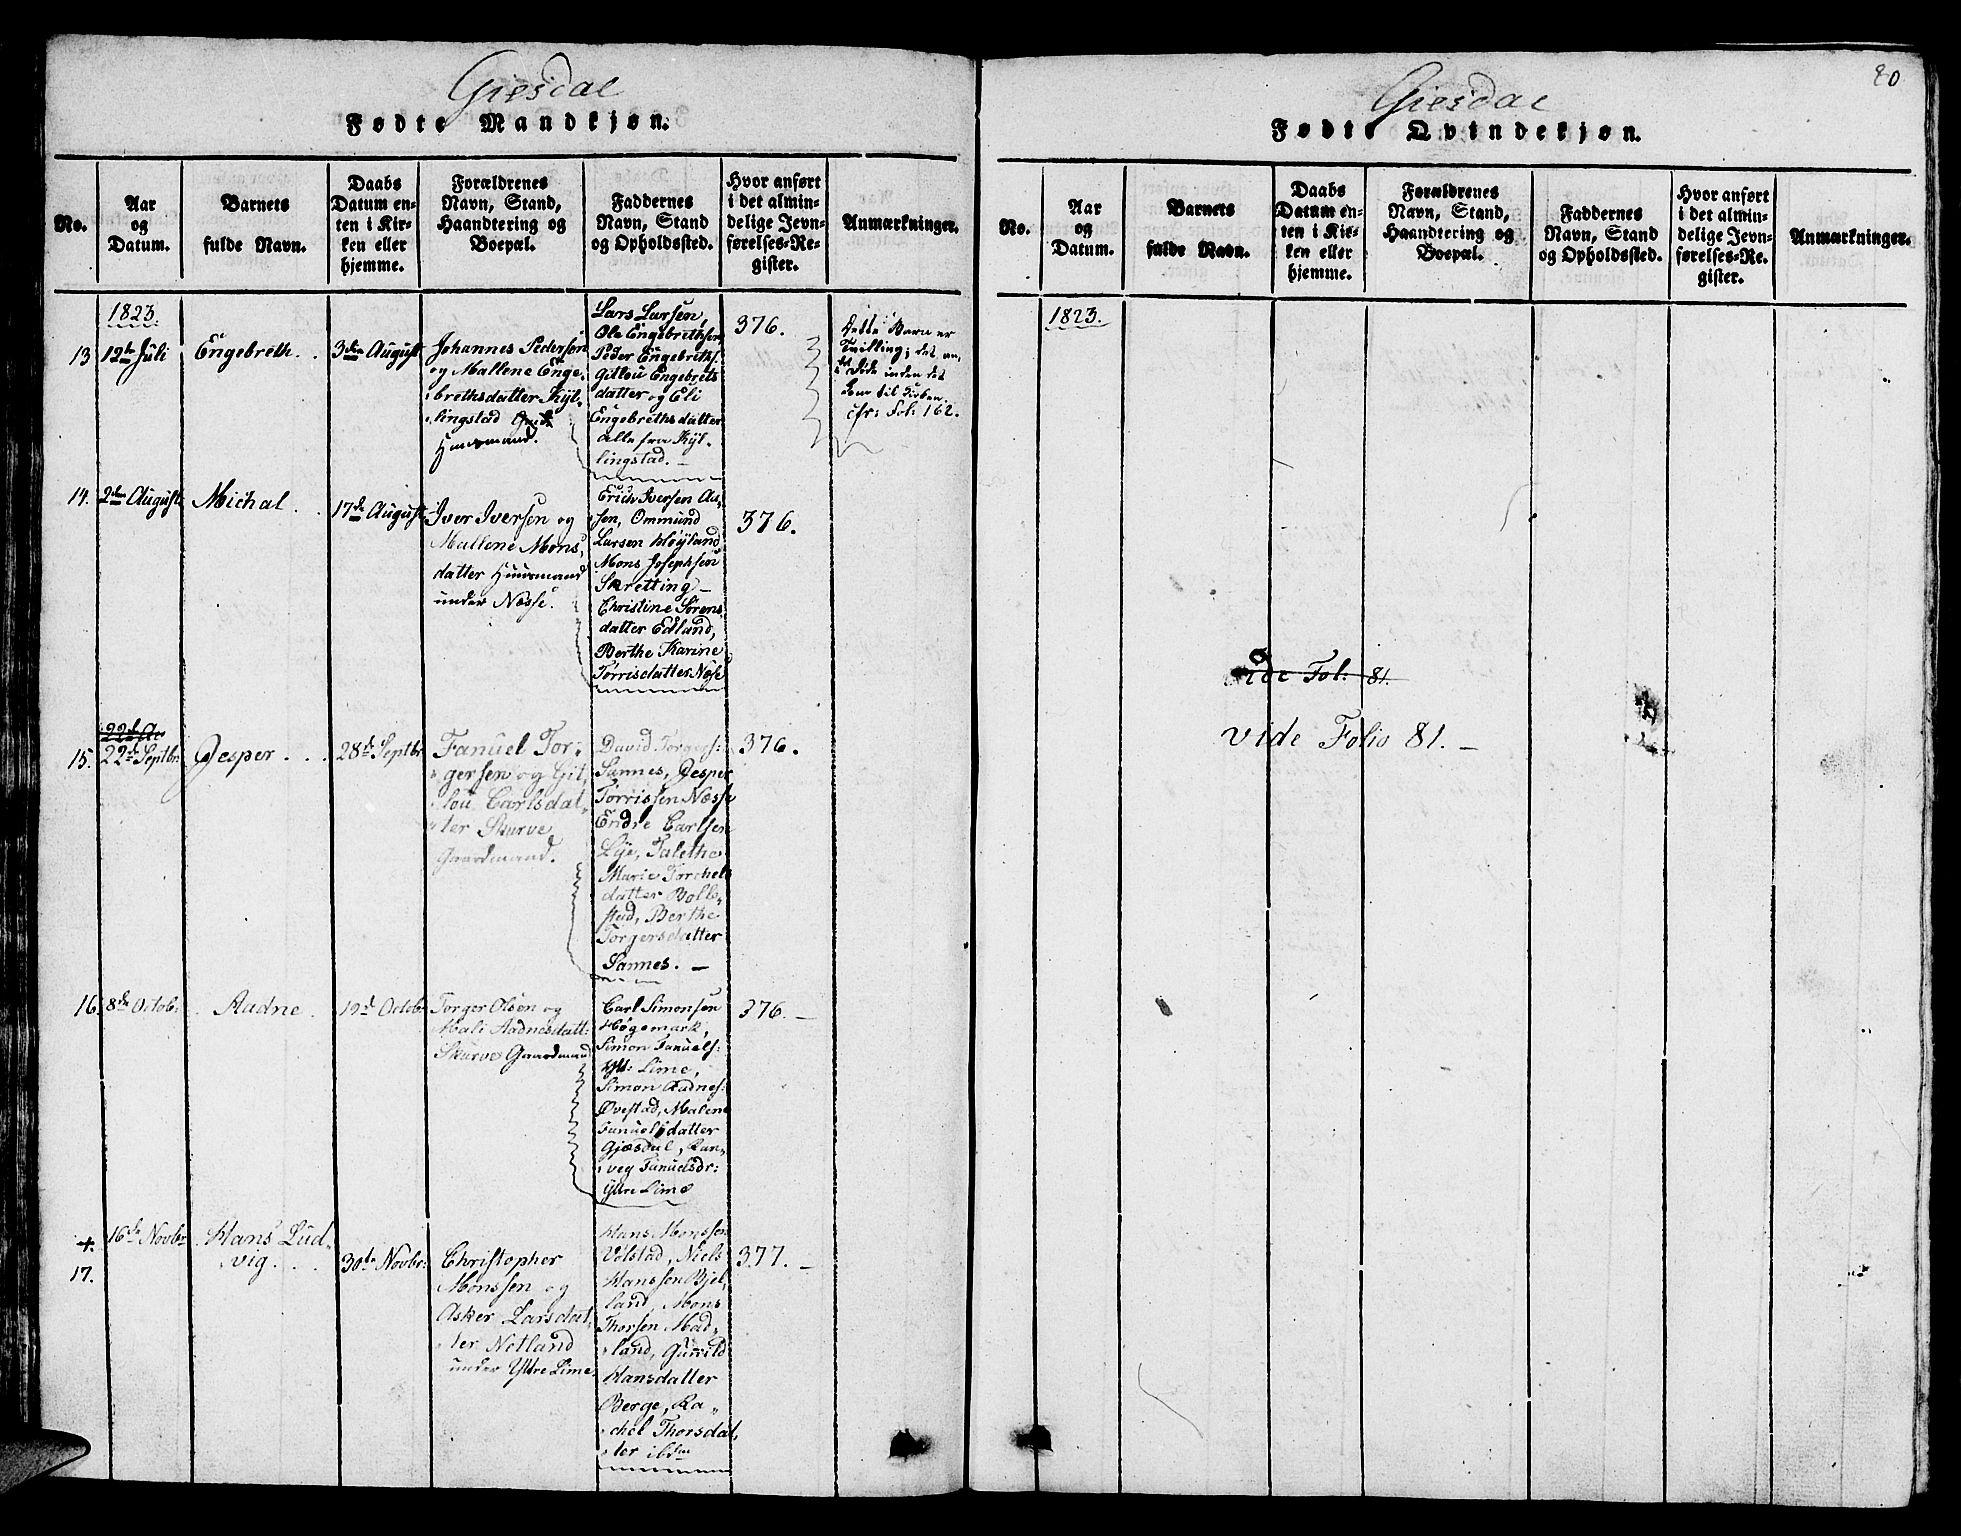 Giesdal
Fødte Mandkjøn.
No.
Aar
og
Datum.
Barnets
fulde Navn.
Daabs
Datum en-
ten i Kir-
ken eller
hjemme.
Forældrenes
Navn, Stand,
Haandtering og
Boepæl.
Faddernes
Navn, Stand
og Opholdssted.
Hvor anført
i det almin-
delige Jevn-
førelses-Re-
gister.
Anmærkninger.
1823.
13
12te Juli
Engebreth.
3die August
Johannes Pedersen
og Mallene Enge-
brethsdatter Kÿl-
lingstad
Huusmand.
Lars Larsen,
Ole Engebrethsen
Peder Engebreths:
Gitlou Engebrets
datter og Eli
Engebrethsdatter
alle fra Kÿl-
lingstad. —
376.
Dette Barn er
Tvilling; det an,
det døde inden det
kom til Kirken.
cfr: Fol: 162.
14.
2den August
Michal.
17de August
Iver Iversen og
Mallene Mons,
datter Huusmand
under Næsse.
Erich Iversen Au,
sen, Ommund
Larsen Høÿland
Mons Josephsen
Skretting —
Christine Sørens
datter Edland,
Berthe Karine
Tørrisdatter Næse
376.
15.
22de Au
22de Septbr
Jesper . . .
28de Septbr
Fanuel Tor-
gersen og Git,
lou Carlsdat,
ter Skurve
Gaardmand.
David Torgers:
Sannes, Jesper
Tørrissen Næsse
Endre Carlsen
Lÿe, Talethe
Marie Torchels
datter Bolle,
stad, Berthe
Torgersdatter
Sannes. —
376.
16.
8de Octob:
Aadne.
19de Octobr
Torger Olsen og
Mali Aadnesdatt:
Skurve Gaardmand
Carl Simonsen
Høgemark,
Simon Fanuels:
Ytt: Lime,
Simon Aadnes:
Øvestad, Malene
Fanuelsdatter
Gjæsdal, Ran,
veg Fanuelsdr:
Ÿttre Lime
376. —
+.
17.
16de Novbr
Hans Lud-
vig. . . .
30te Novbr:
Christopher
Monssen og
Asker Larsdat,
ter Netland
under Yttre Lime.
Hans Monssen
Vølstad, Niels
Hanssen Bjel,
land, Mons
Thorsen Mad,
land, Gunild
Hansdatter
Berge, Ra,
chel Thorsdat,
ter ibdm
377. —
80
Giesdal
Fødte Qvindekjøn.
No.
Aar
og
Datum.
Barnets
fulde Navn.
Daabs
Datum en-
ten i Kir-
ken eller
hjemme.
Forældrenes
Navn, Stand,
Haandtering og
Boepæl.
Faddernes
Navn, Stand
og Opholdssted.
Hvor anført
i det almin-
delige Jevn-
førelses-Re-
gister.
Anmærkninger.
1823.
vide Fol: 81.
vide Folio 81. —